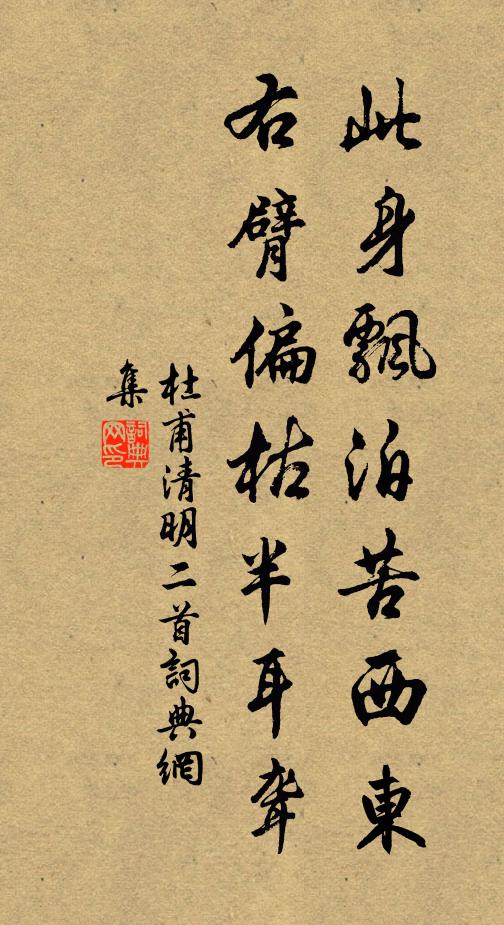 此身飄泊苦西東
右臂偏枯半耳聾
杜甫清明二首詞典網
集
詞典網印